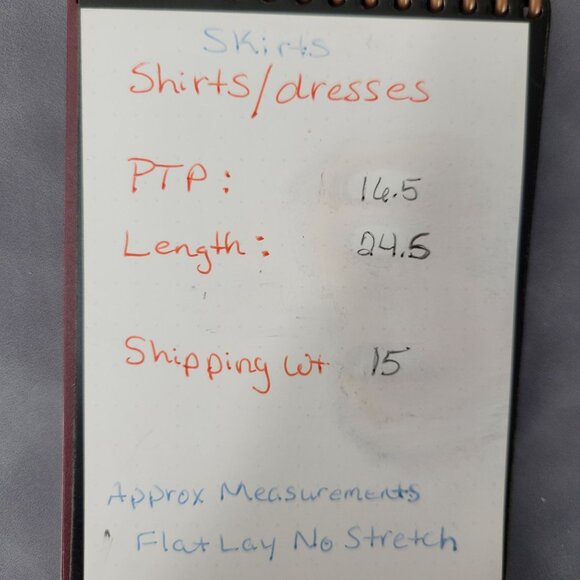 Skirts
Shirts/dresses
PTP: 16.5
Length: 24.5
Shipping Wt 15
Approx Measurements
Flat Lay No Stretch